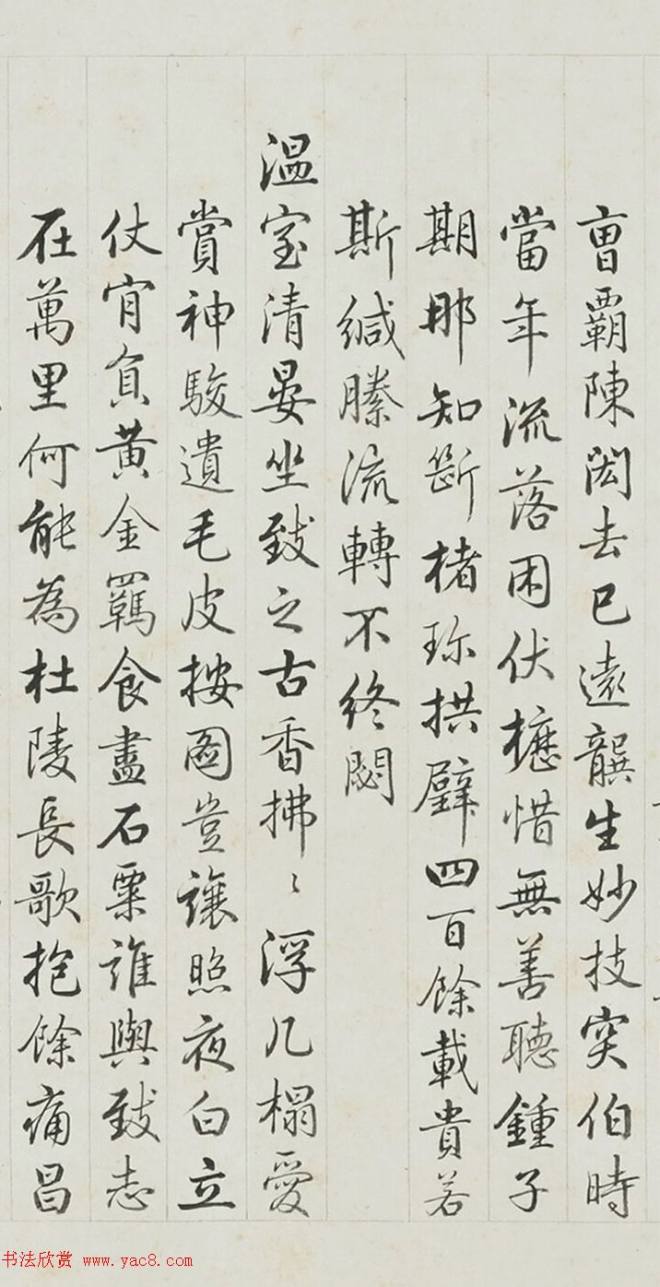 曹霸陳閎去已遠龔生妙技突伯時
當年流落困伏櫪惜無善聽鍾子
期那知斷楮珍拱璧四百餘載貴若
斯緘縢流轉不終閟
溫室清晏坐致之古香拂〻浮几榻愛
賞神駿遺毛皮按圖豈讓照夜白立
仗肎負黃金羈食盡石粟誰與致志
在萬里何能為杜陵長歌抱餘痛昌
书法欣赏 www.yac8.com